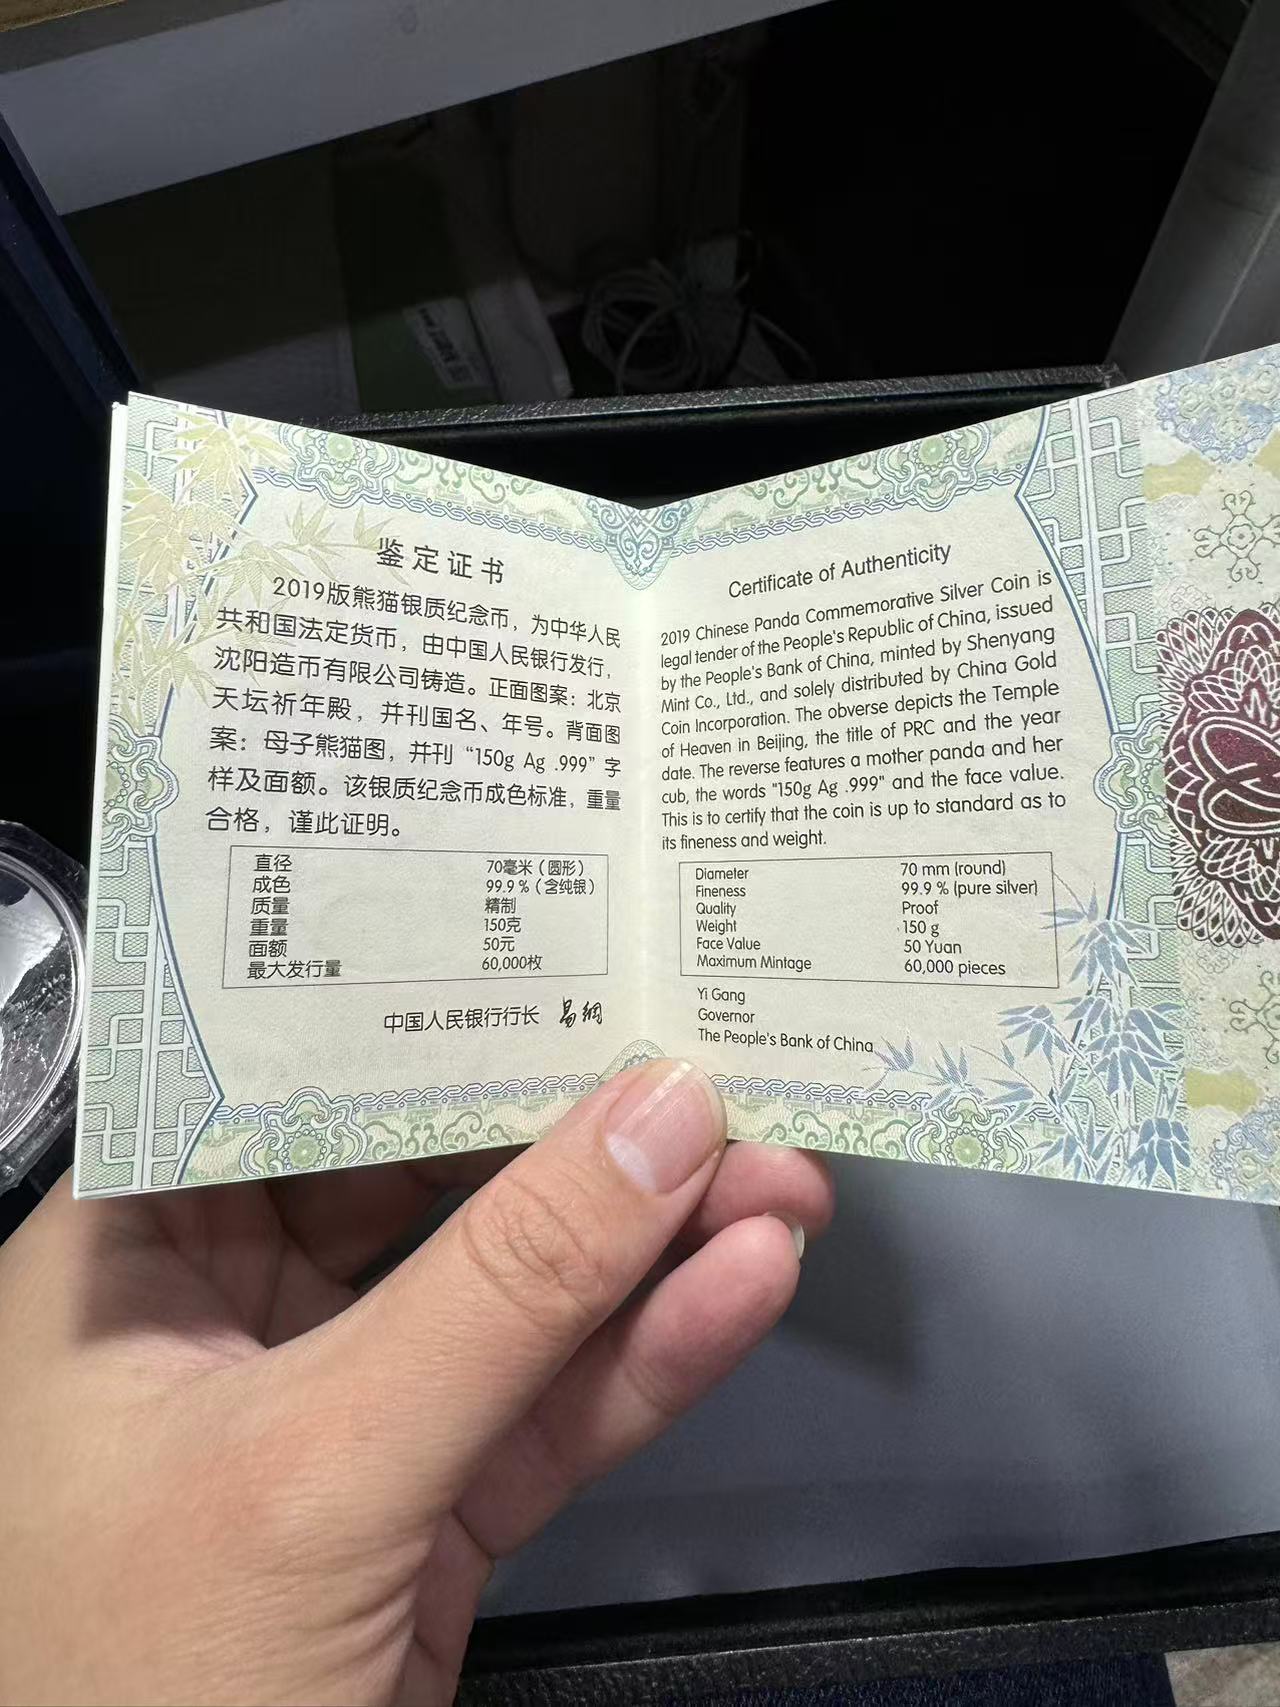 鉴定证书
2019版熊猫银质纪念币，为中华人民
共和国法定货币，由中国人民银行发行，
沈阳造币有限公司铸造。正面图案：北京
天坛祈年殿，并刊国名、年号。背面图
案：母子熊猫图，并刊“150g Ag .999”字
样及面额。该银质纪念币成色标准，重量
合格，谨此证明。
直径 70毫米（圆形）
成色 99.9％（含纯银）
质量 精制
重量 150克
面额 50元
最大发行量 60,000枚
中国人民银行行长 易纲
Certificate of Authenticity
2019 Chinese Panda Commemorative Silver Coin is
legal tender of the People's Republic of China, issued
by the People's Bank of China, minted by Shenyang
Mint Co., Ltd., and solely distributed by China Gold
Coin Incorporation. The obverse depicts the Temple
of Heaven in Beijing, the title of PRC and the year
date. The reverse features a mother panda and her
cub, the words "150g Ag .999" and the face value.
This is to certify that the coin is up to standard as to
its fineness and weight.
Diameter 70 mm (round)
Fineness 99.9 % (pure silver)
Quality Proof
Weight 150 g
Face Value 50 Yuan
Maximum Mintage 60,000 pieces
Yi Gang
Governor
The People's Bank of China